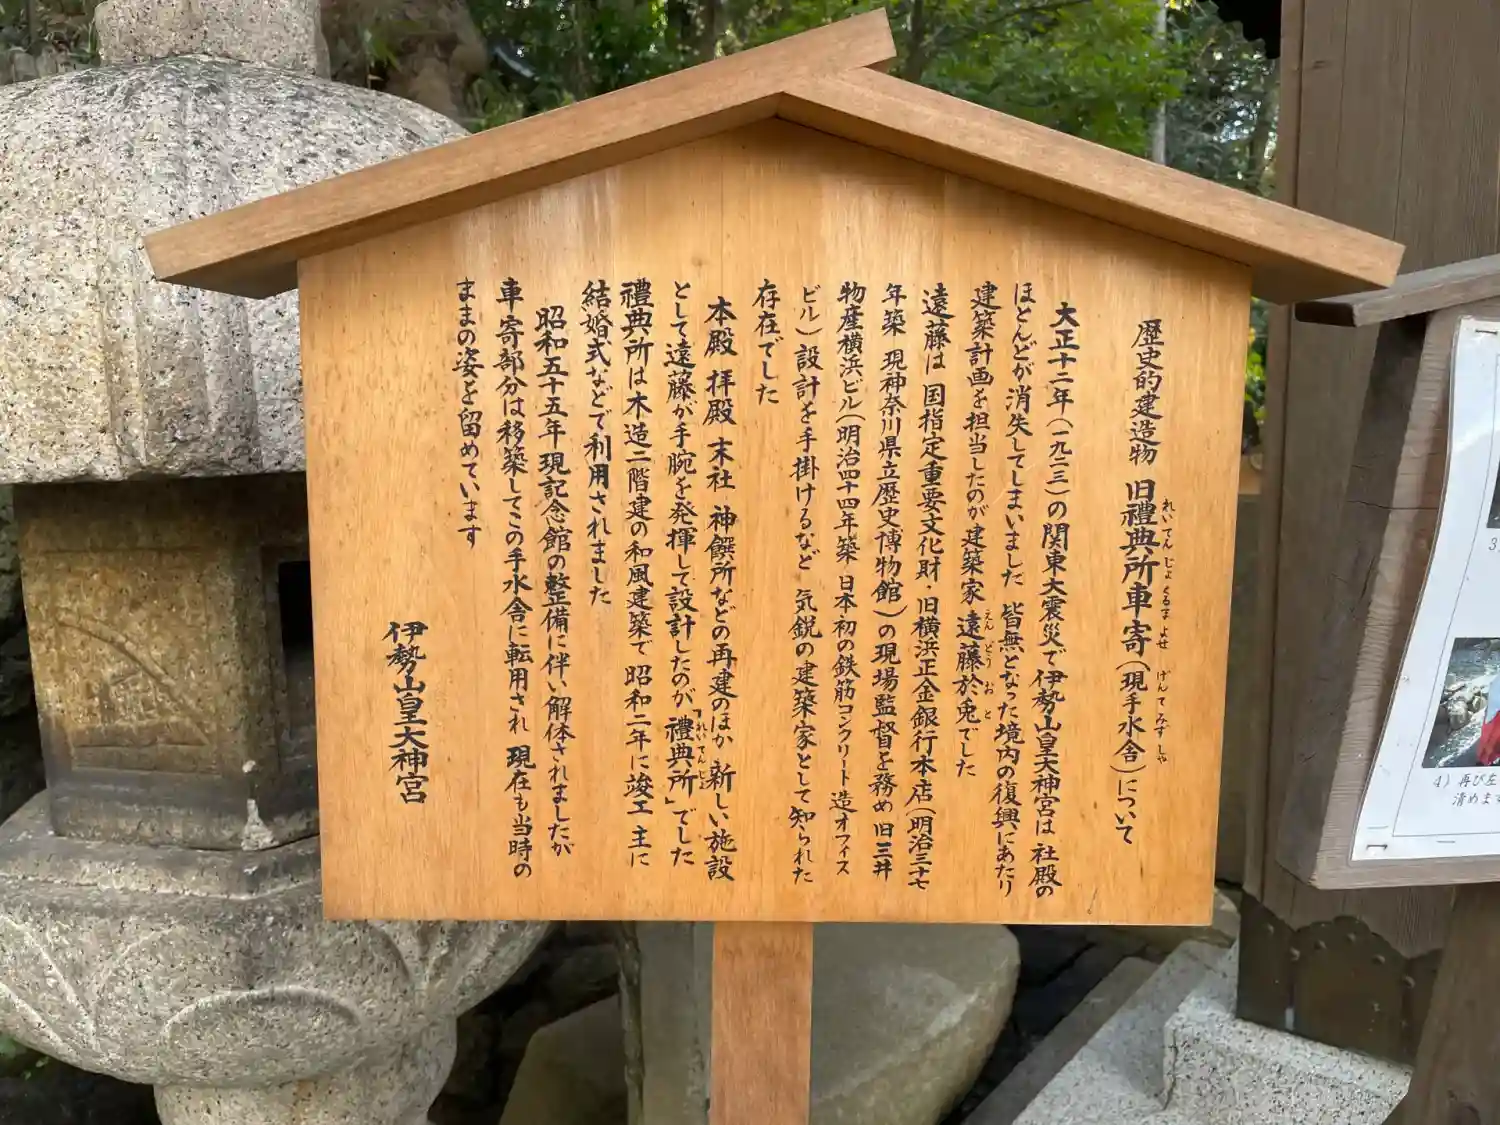 歴史的建造物 旧禮典所車寄(現手水舎)について
れいてんじょくるまよせ げんてみずしや
大正十二年(一九二三)の関東大震災で伊勢山皇大神宮は 社殿の
ほとんどが消失してしまいました 皆無となった境内の復興にあたり
建築計画を担当したのが建築家 遠藤於兎でした
えんどうおと
遠藤は 国指定重要文化財 旧横浜正金銀行本店(明治三十七
年築 現神奈川県立歴史博物館)の現場監督を務め 旧三井
物産横浜ビル(明治四十四年築 日本初の鉄筋コンクリート造オフィス
ビル)設計を手掛けるなど 気鋭の建築家として知られた
存在でした
本殿 拝殿 末社 神饌所などの再建のほか 新しい施設
として遠藤が手腕を発揮して設計したのが「禮典所」でした
れいてんじょ
禮典所は木造二階建の和風建築で 昭和二年に竣工 主に
結婚式などで利用されました
昭和五十五年現記念館の整備に伴い解体されましたが
車寄部分は移築してこの手水舎に転用され 現在も当時の
ままの姿を留めています
伊勢山皇大神宮
3
4)再び左
清めます